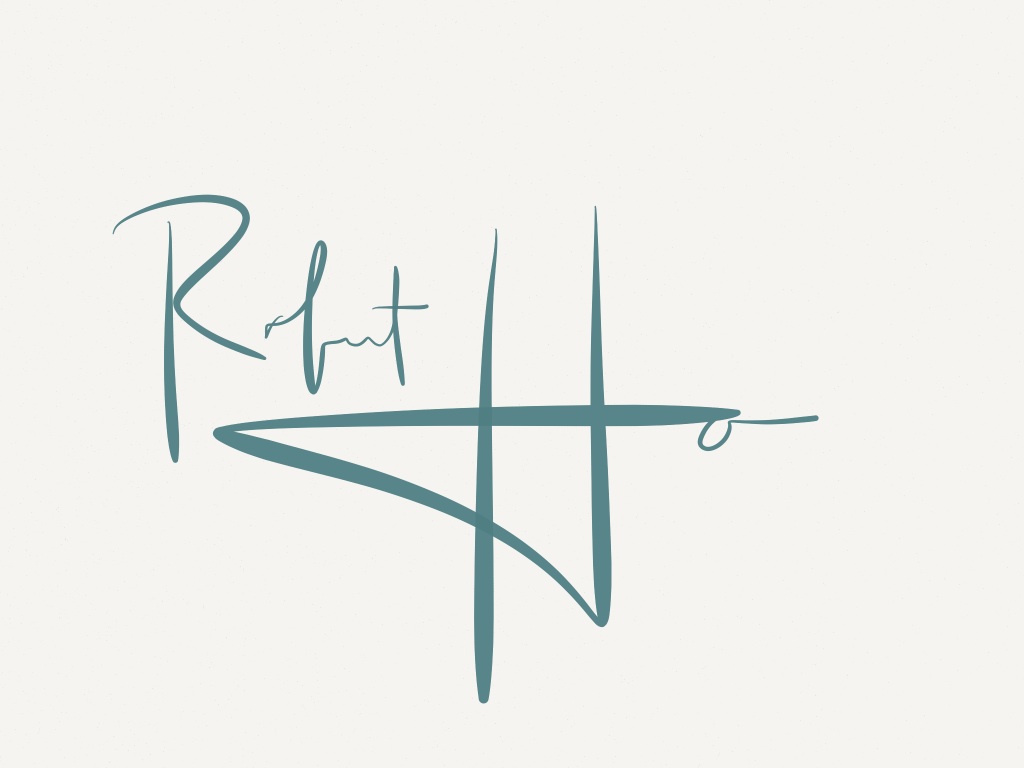 Robert Ho